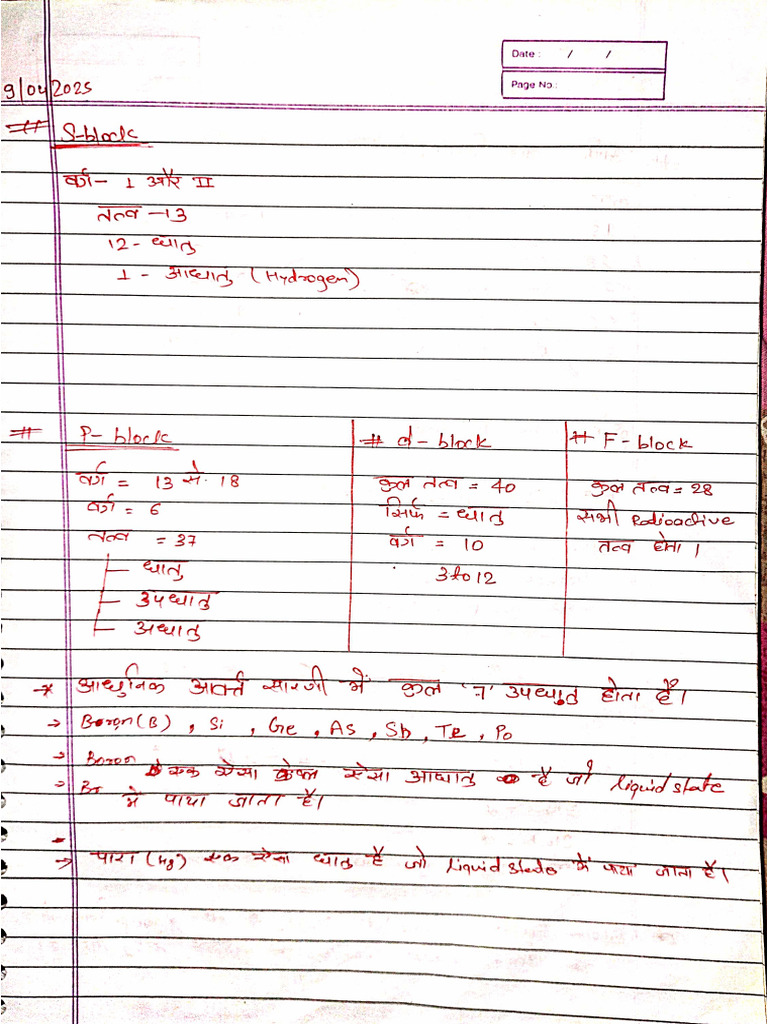 Date : / /
Page No.:
9/04/2025
# S-block
वर्ग- 1 और II
तत्व -13
12- धातु
1 - आधातु (Hydrogen)
# P- block
वर्ग = 13 से 18
वर्ग = 6
तत्व = 37
धातु
उपधातु
अधातु
# d-block
कुल तत्व = 40
सिर्फ = धातु
वर्ग = 10
3 to 12
# F-block
कुल तत्व = 28
सभी Radioactive
तत्व होता।
* आधुनिक आवर्त सारणी में कुल '7' उपधातु होता है।
→ Boron(B), Si, Ge, As, Sb, Te, Po
→ Boron एक ऐसा ऐसा आधातु है जो liquid state
→ Br में पाया जाता है।
→ पारा (Hg) एक ऐसा धातु है जो liquid state में पाया जाता है।